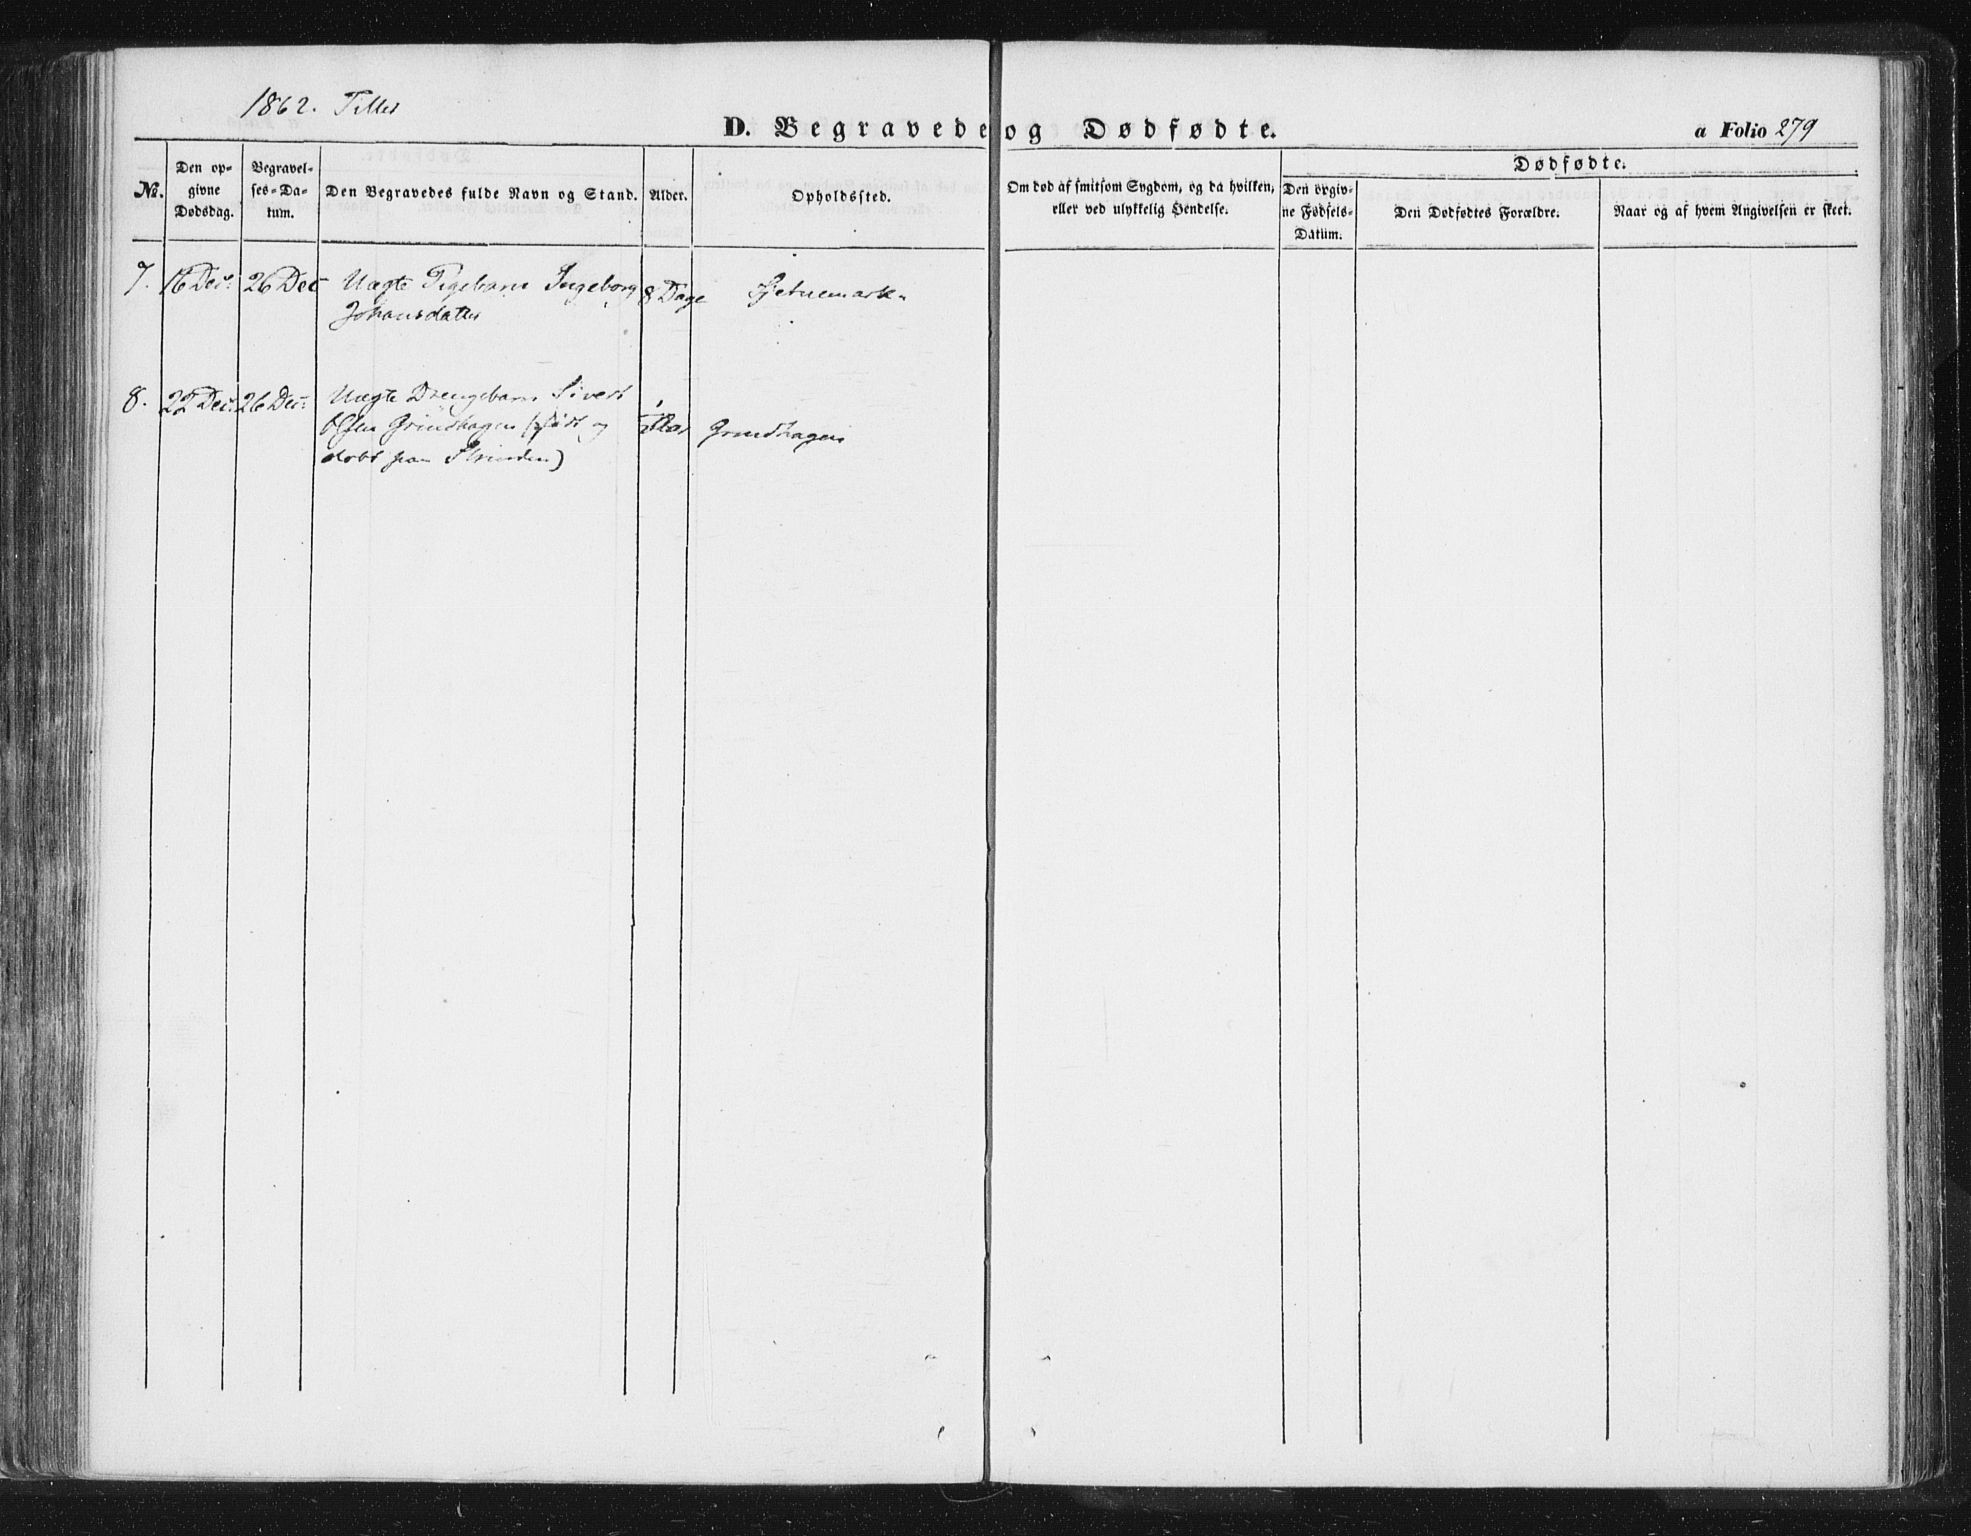 1862. Tiller
D. Begravede og Dødfødte.
a Folio 279
No.
Den op-
givne
Dødsdag.
Begravel-
ses-Da-
tum.
Den Begravedes fulde Navn og Stand.
Alder.
Opholdssted.
Om død af smitsom Sygdom, og da hvilken,
eller ved ulykkelig Hendelse.
Dødfødte.
Den opgiv-
ne Fødsels-
Datum.
Den Dødfødtes Forældre.
Naar og af hvem Angivelsen er skeet.
7. 16 Dec: 26 Dec Uægte Pigebarn Ingeborg 8 Dage
Johansdatter
8. 22 Dec: 26 Dec: Uægte Drengebarn Sivert
Olsen Grundhagen (født og Grundhagen
døbt paa Strinden)